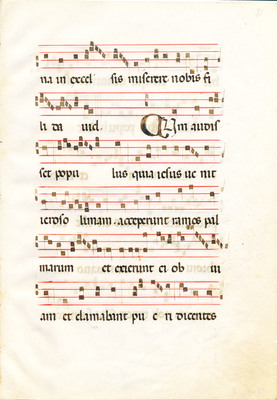 na in excel sis miserere nobis fi
li da vid. Cum audis
set popu lus quia iesus ue nit
ieroso limam. acceperunt ramos pal
marum et exierunt ei ob ui
am et clamabant pu e ri dicentes